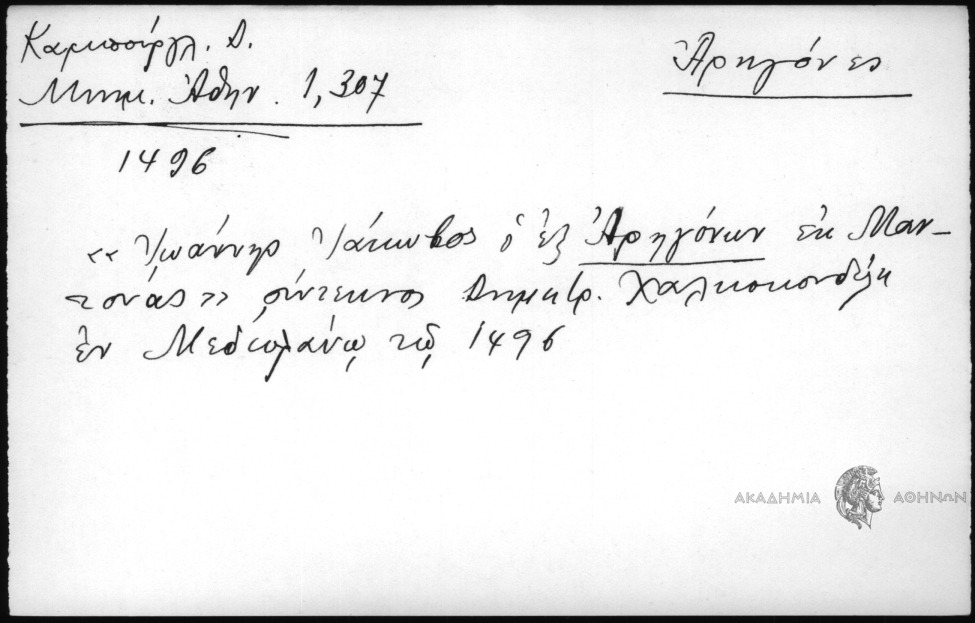 Καμπούργλ. Δ.
Μνημ. Ἀθην. 1,307
Ἀρηγόνες
1496
«Ἰωάννης Ἰάκωβος ὁ ἐξ Ἀρηγόνων ἐκ Μαν-
τούας» σύντεκνος Δημητρ. Χαλκοκονδύλη
ἐν Μεδιολάνῳ τῷ 1496
ΑΚΑΔΗΜΙΑ ΑΘΗΝΩΝ